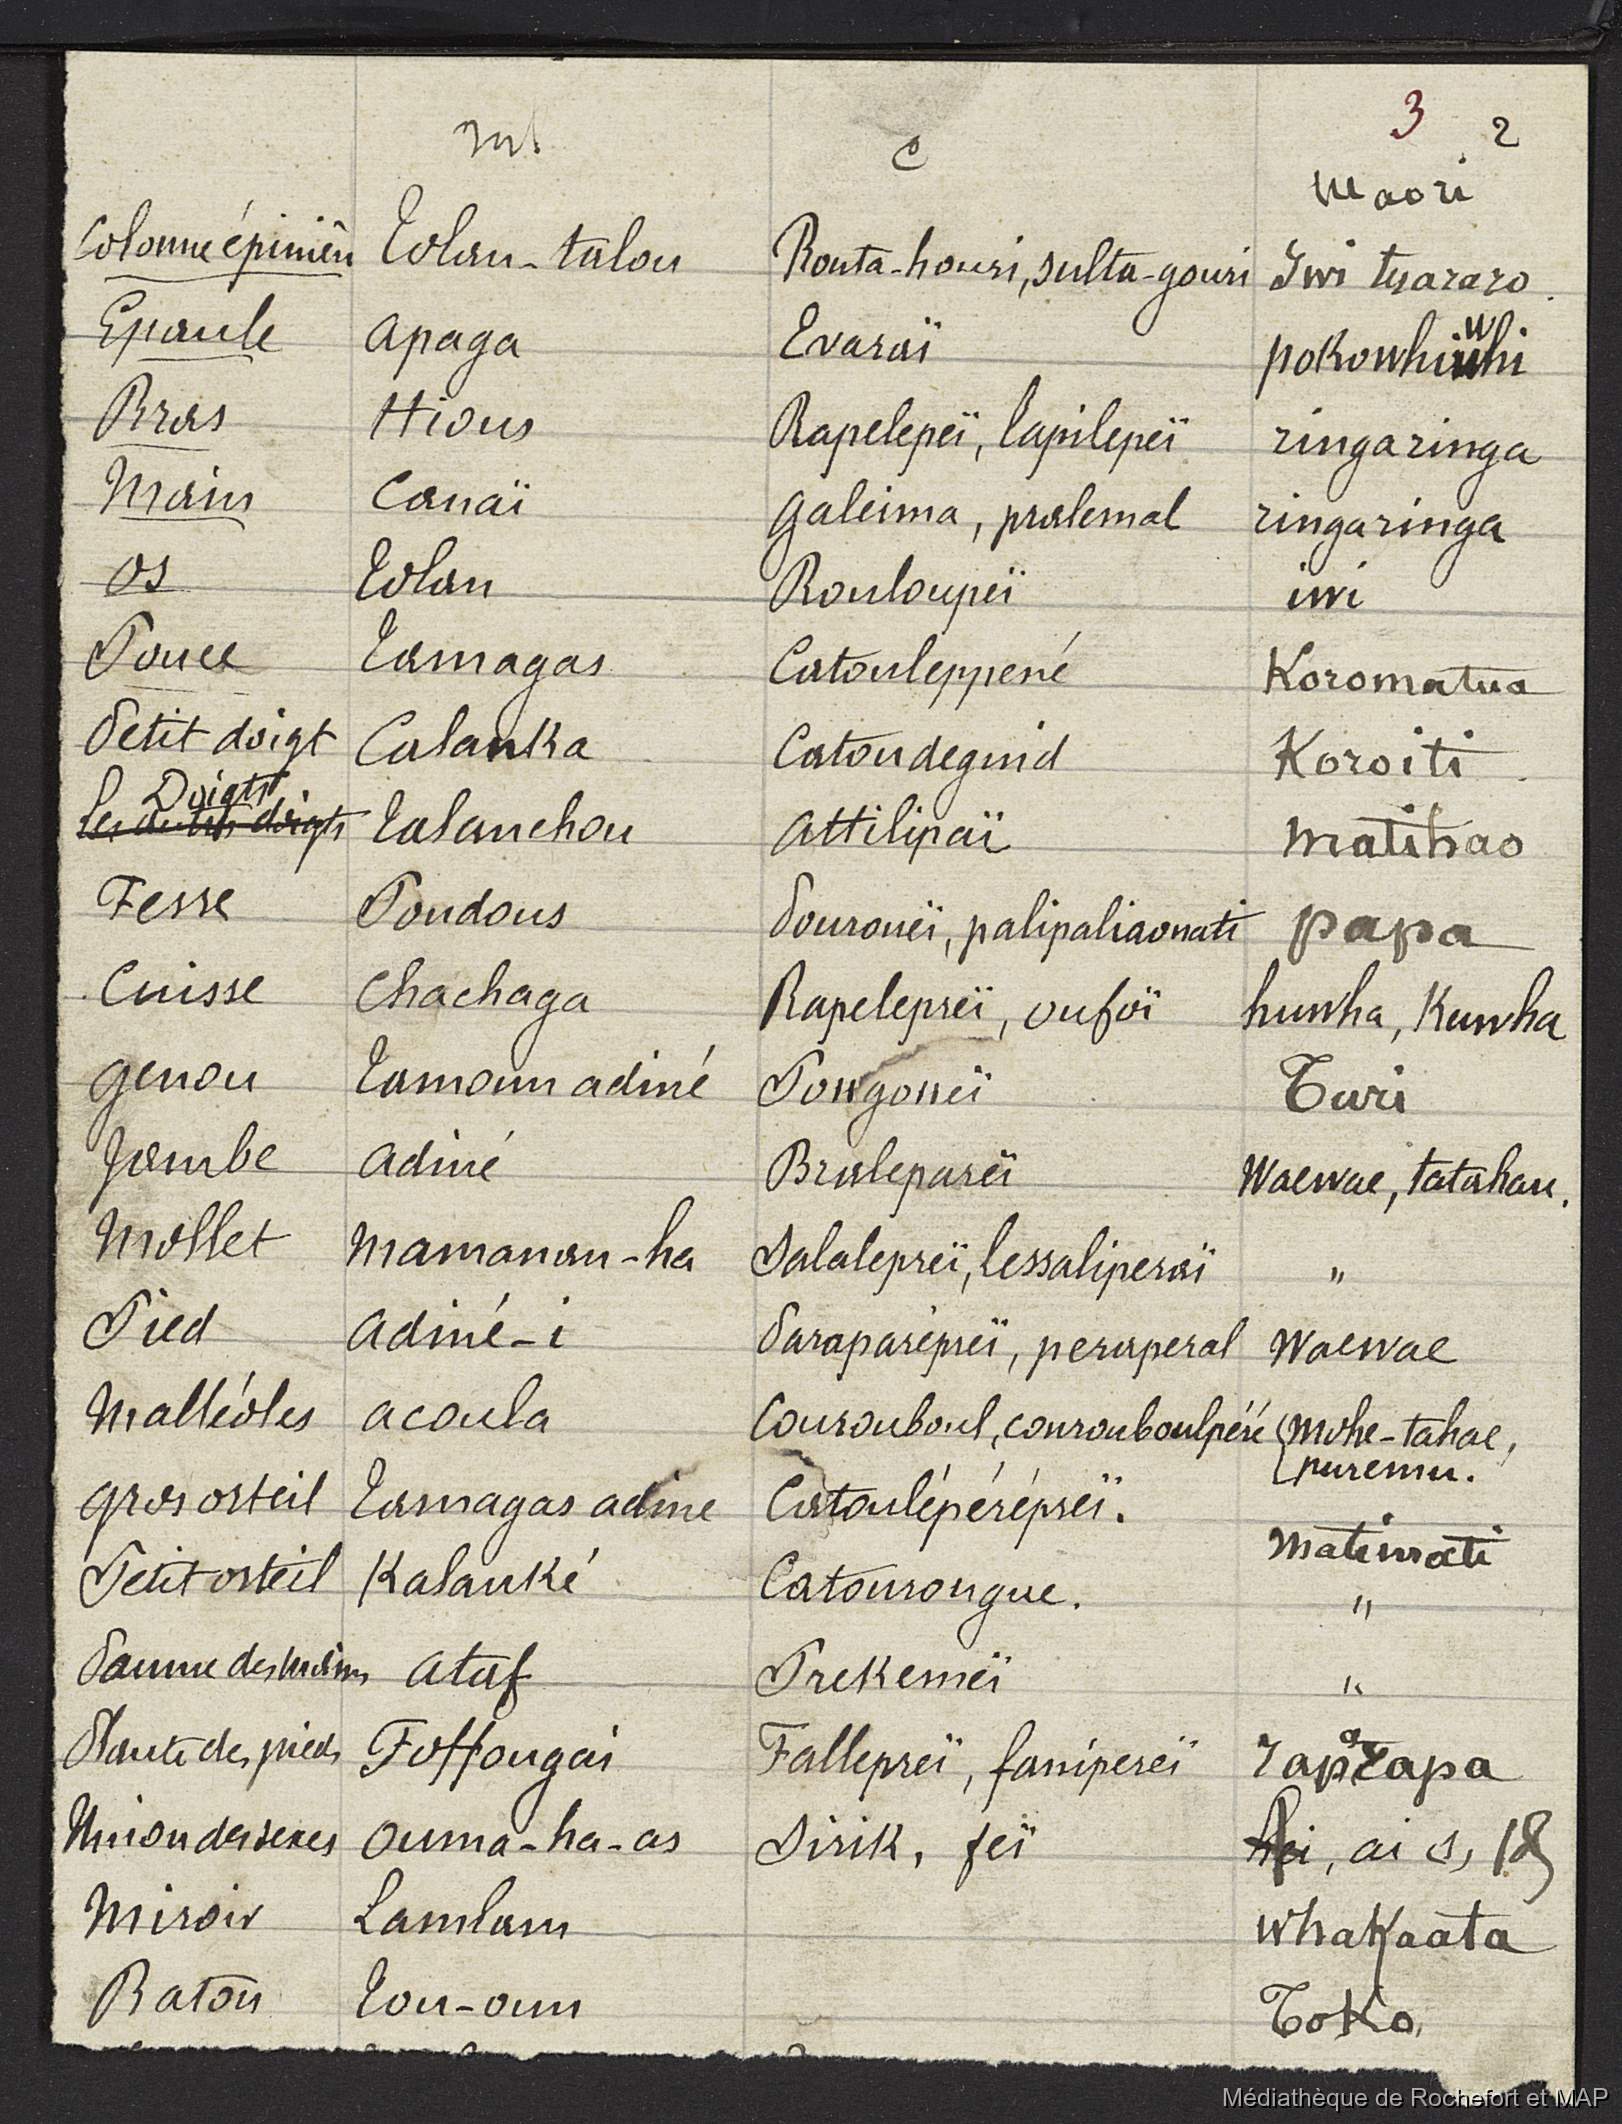 3 2
C Maori
Colonne épinièr Tolan-talou Routa-houri, sulta-gouri Iwi tuararo.
Epaule Apaga Evaraï pokowhiwhi w
Bras Hious Rapelepeï, Lapilepeï ringaringa
Main Canaï Galeima, pralemal ringaringa
Os Tolan Rouloupeï iwi
Pouce Tamagas Catouleppené Koromatua
Petit doigt Calanka Catoudeguid Koroiti
Doigts
Les autres doigts Talanchou Attilipaï Matihao
Fesse Poudous Pouroueï, palipaliaouati papa
Cuisse Chachaga Rapelepreï, oufoï huwha, Kuwha
Genou Tamoun adiné Pougoueï Turi
Jambe Adiné Bralepareï Waewae, tatahau.
Mollet Mamanan-ha Salalepreï, lessaliperaï "
Pied Adiné-i Paraparépreï, peraperal Waewae
Malléoles Acoula Courouboul, courouboulpéré Mohe-tahae,
puremu.
Gros orteil Tamagas adine Catoulépérépreï.
Matimati
Petit orteil Kalanké Catourongue. "
Paume des mains Ataf Prekemeï "
Plante des pieds Foffougai Fallepreï, faniperei rapa a rapa
Union des sexes Ouma-ha-as Sirik, feï ai
Miroir Lamlam whakaata
Baton Tou-oun Toko.
Médiathèque de Rochefort et MAP